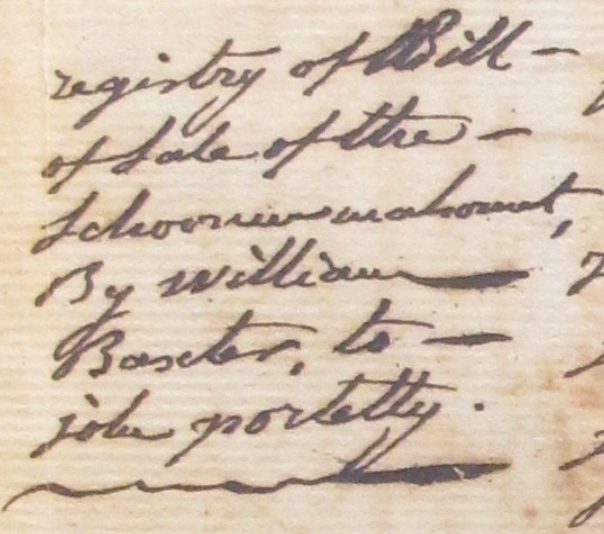 registry of Bill –
of Sale of the –
Schooner mahomet,
By William
Baxter, to –
john portelly.